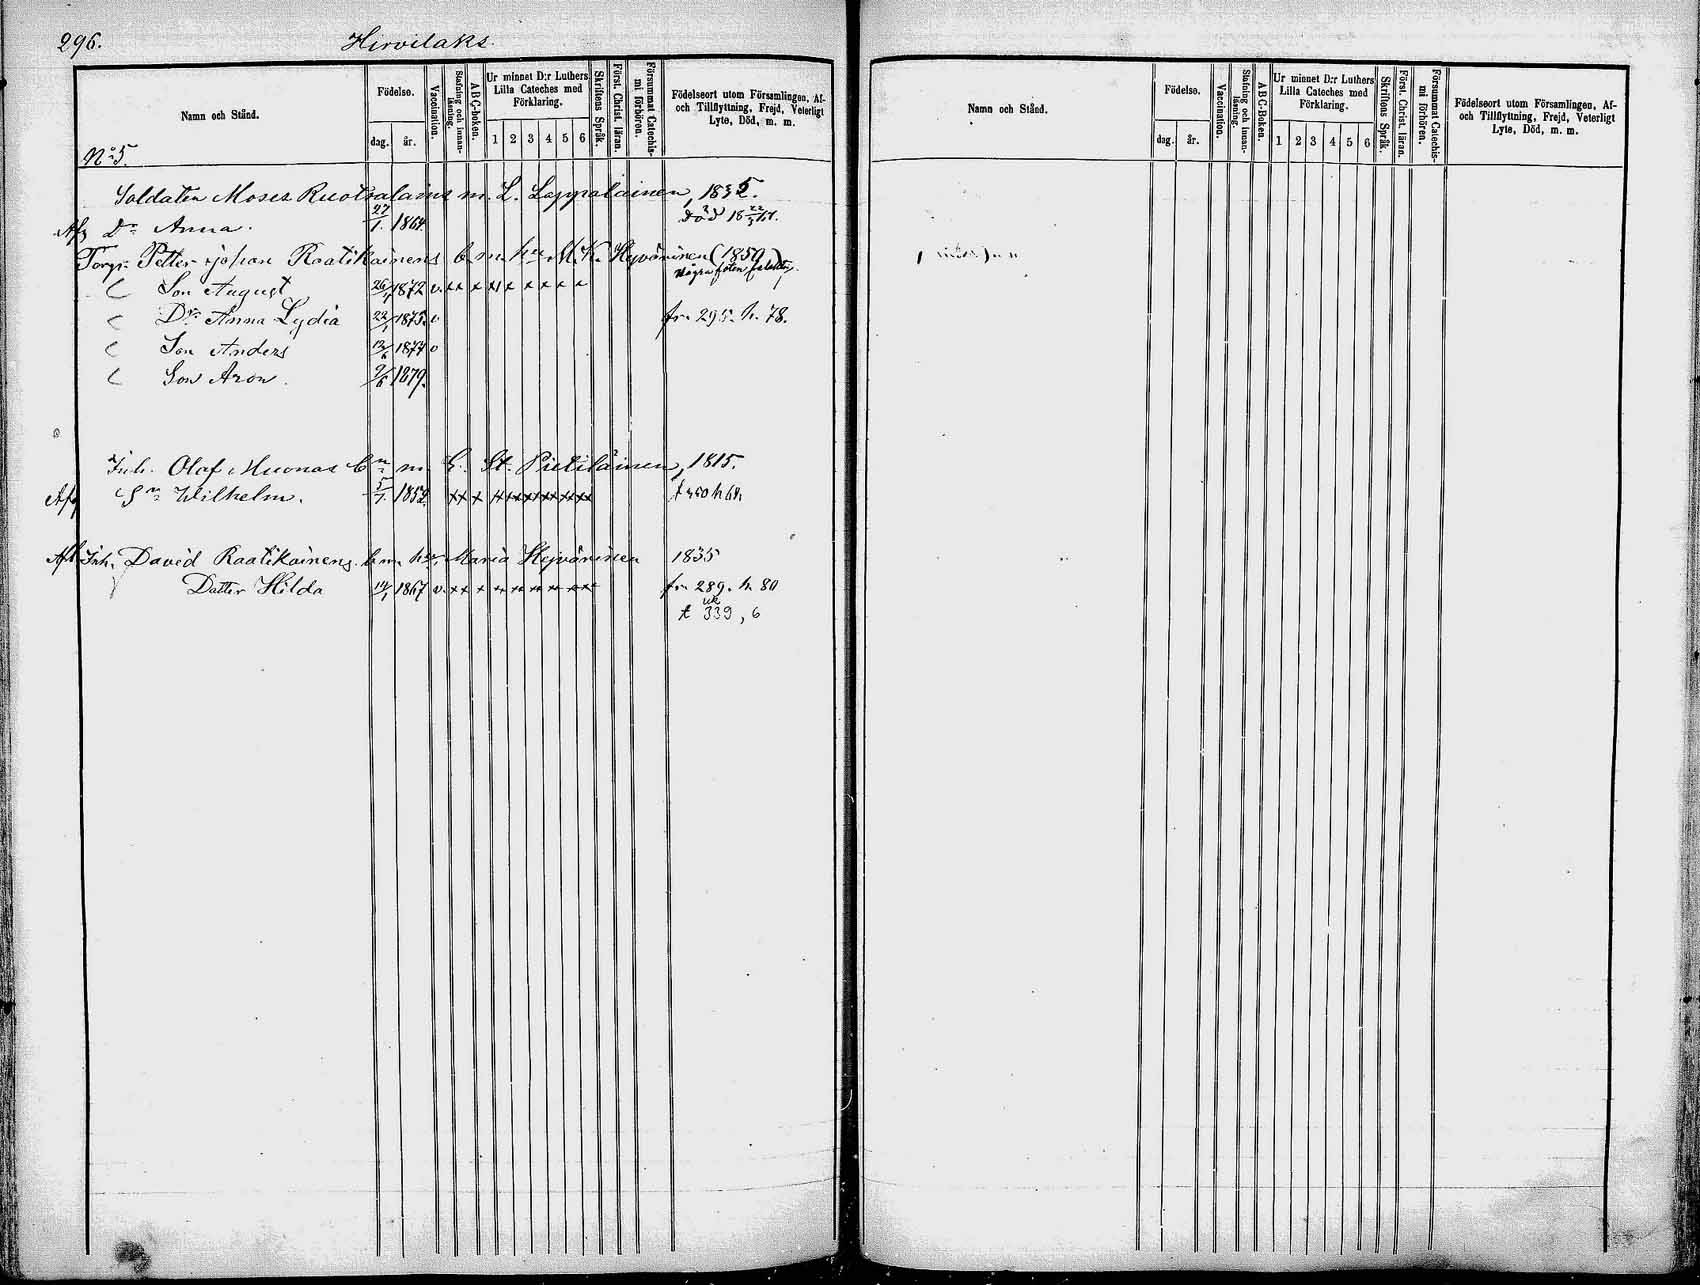 296.
Hirvilaks
Namn och Stånd.
Födelse.
dag. år.
Vaccination.
Stafning och innanläsning.
A B C-boken.
Ur minnet D:r Luthers Lilla Cateches med Förklaring.
1 2 3 4 5 6
Skriftens Språk.
Först. Christ. läran.
Försummat Catechismi förhören.
Födelseort utom Församlingen, Af- och Tillflyttning, Frejd, Veterligt Lyte, Död, m. m.
No 5.
Soldaten Moses Ruotsalains m. L. Lappalainen, 1835.
Afg Dr Anna. 27/1. 1864. död 18
Torp. Petter Johan Raatikainens b. m. hu M. K. Heyvärinen (1850)
Son August 26/1 1872 v. xx x x x x x x x
Dr Anna Lydia 22/1 1875. v fr. 295. h. 78.
Son Anders 12/6 1877 v
Son Aron. 9/6 1879.
Inh. Olaf Muonas bn m. E. St. Pietiläinen, 1815.
Afg Sn Wilhelm. 5/7. 1852. xx x xx xx xx xx xx xx
Afl Inh. David Raatikainens. b. m. hu, Maria Heyvärinen 1835
Datter Hilda 14/1 1867 v. xx x xx xx xx xx xx xx fr. 289. h 80
t 339, 6
Namn och Stånd.
Födelse.
dag. år.
Vaccination.
Stafning och innanläsning.
A B C-Boken.
Ur minnet D:r Luthers Lilla Cateches med Förklaring.
1 2 3 4 5 6
Skriftens Språk.
Först. Christ. läran.
Försummat Catechismi förhören.
Födelseort utom Församlingen, Af- och Tillflyttning, Frejd, Veterligt Lyte, Död, m. m.